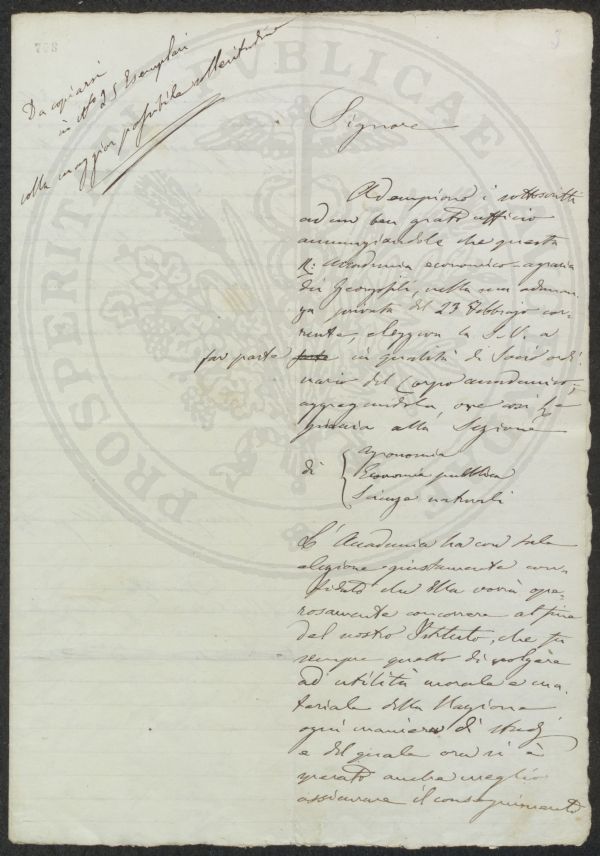 768
5
Da copiarsi
in N.o 25 Esemplari
colla maggior possibile sollecitudine
PROSPERITATI PUBLICAE
Signore
Adempiono i sottoscritti
ad un ben grato ufficio
annunziandole che questa
R. Accademia economico-agraria
dei Georgofili, nella sua adunan
za privata del 23 Febbrajo cor-
rente, eleggeva la S.V. a
far parte in qualità di Socio ordi
nario del Corpo accademico,
aggregandola, ove così le
piaccia alla Sezione
di
Agronomia
Economia pubblica
Scienze naturali
L'Accademia ha con tale
elezione giustamente con-
fidato che Ella vorrà ope-
rosamente concorrere al fine
del nostro Istituto, che fu
sempre quello di volgere
ad utilità morale e ma-
teriale della Nazione
ogni maniera di studj
e del quale ora si è
sperato anche meglio
assicurare il conseguimento